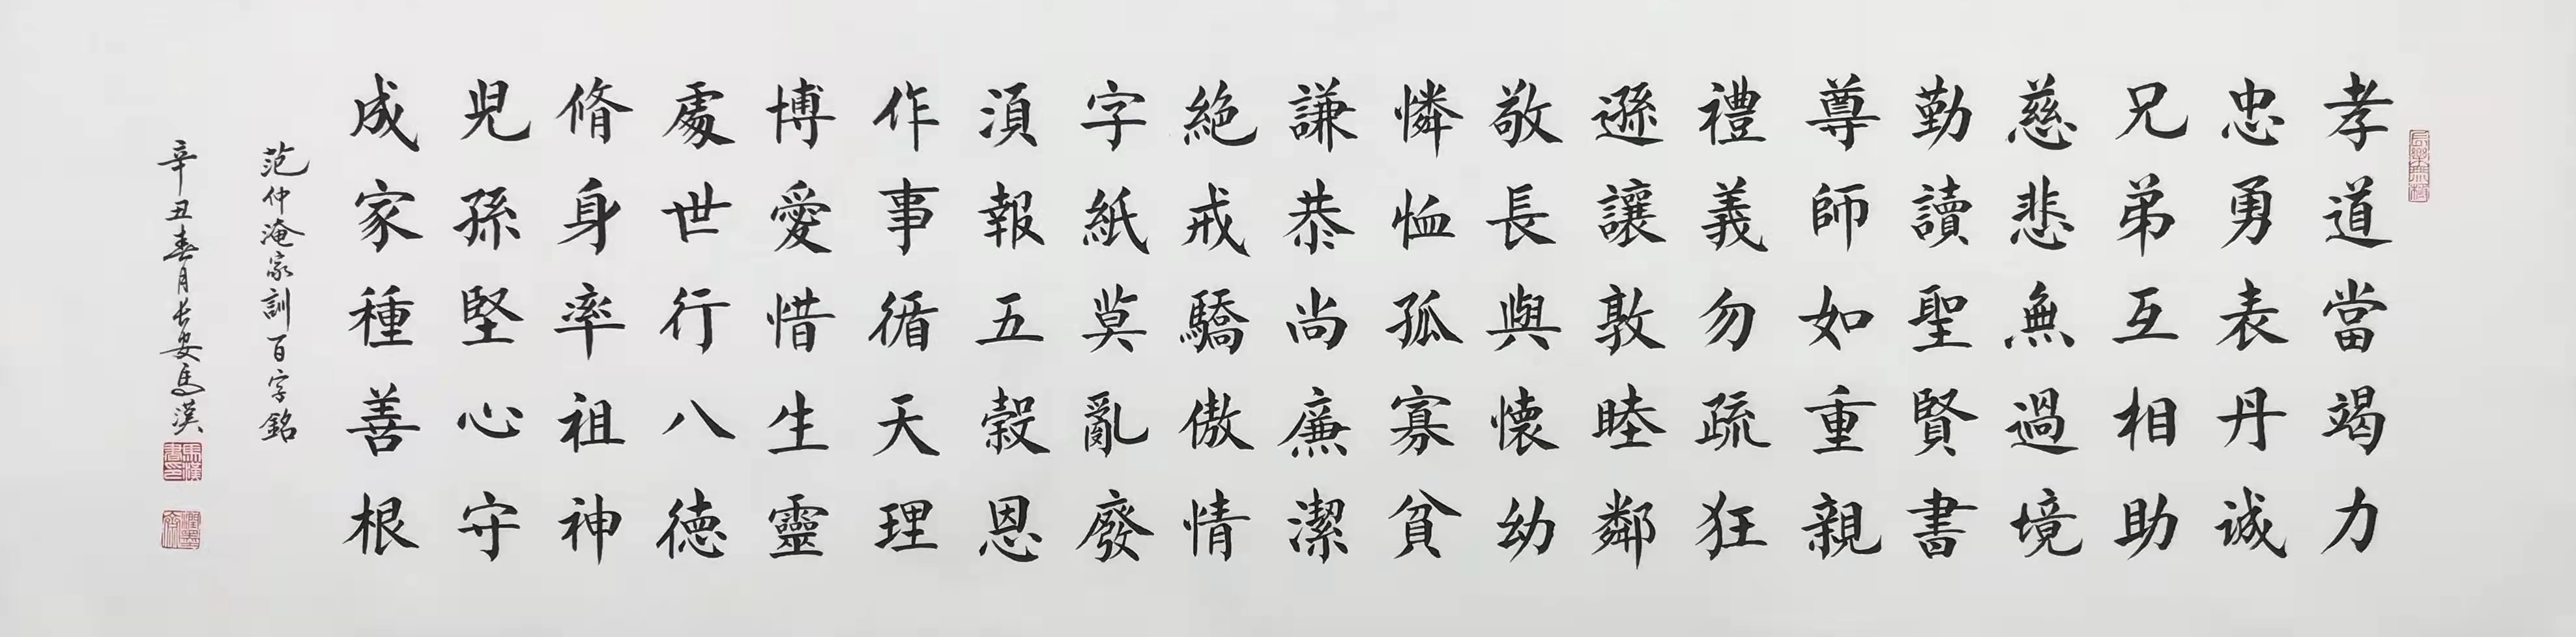 孝道當竭力
忠勇表丹诚
兄弟互相助
慈悲無過境
勤讀聖賢書
尊師如重親
禮義勿疏狂
遜讓敦睦鄰
敬長與懐幼
憐恤孤寡貧
謙恭尚廉潔
絶戒驕傲情
字紙莫亂廢
須報五穀恩
作事循天理
博愛惜生靈
處世行八德
脩身率祖神
児孫堅心守
成家種善根
范仲淹家訓百字銘
辛丑春月长安馬漢